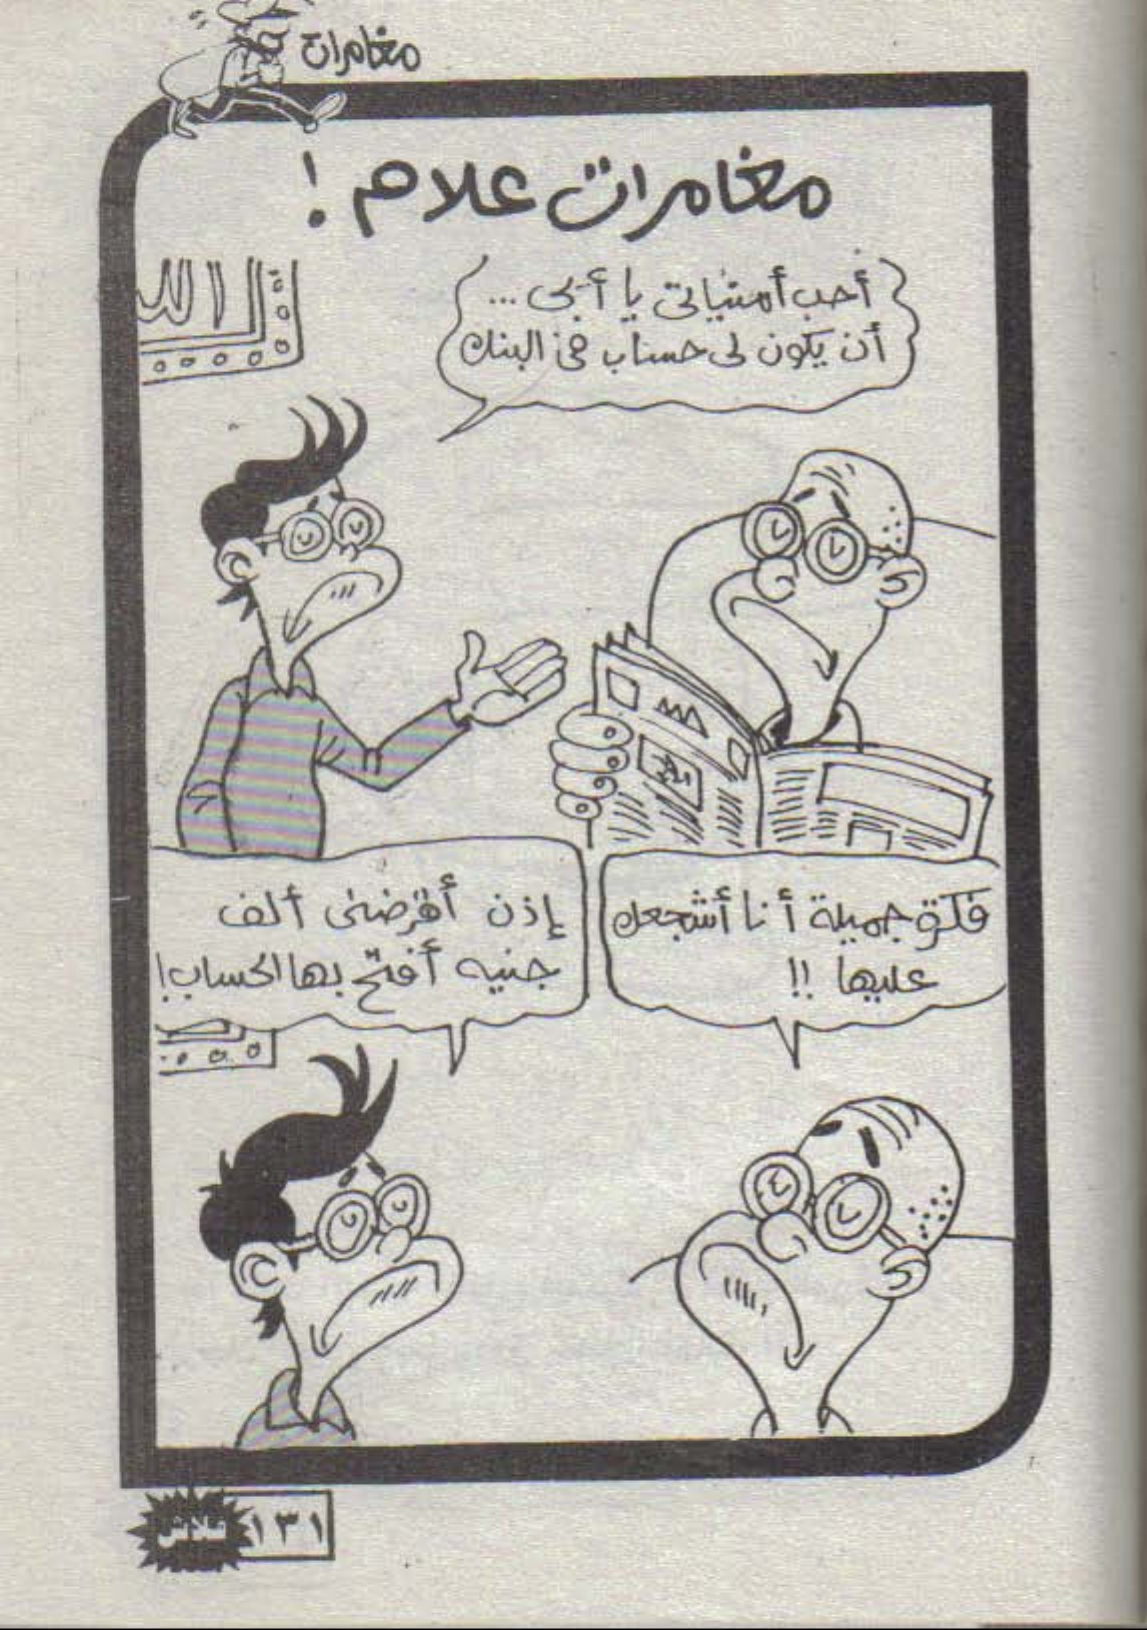 مغامرات
مغامرات علام !
أحب أمنياتى يا أبى ...
أن يكون لى حساب فى البنك
فكرة جميلة أنا أشجعك
عليها !!
إذن أقرضنى ألف
جنيه أفتح بها الحساب !
الله
١٣١
فلاش